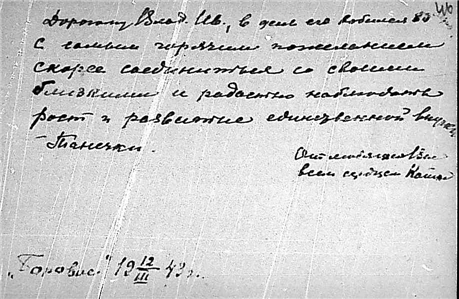 46
Дорогому Влад. Ив., в день его юбилея 80
с самым горячим пожеланием
скорее соединиться со своими
близкими и радостно наблюдать
рост и развитие единственной внучки
Танечки.
От любящей Вас
всем сердцем
"Боровое" 19 12/III 43 г.